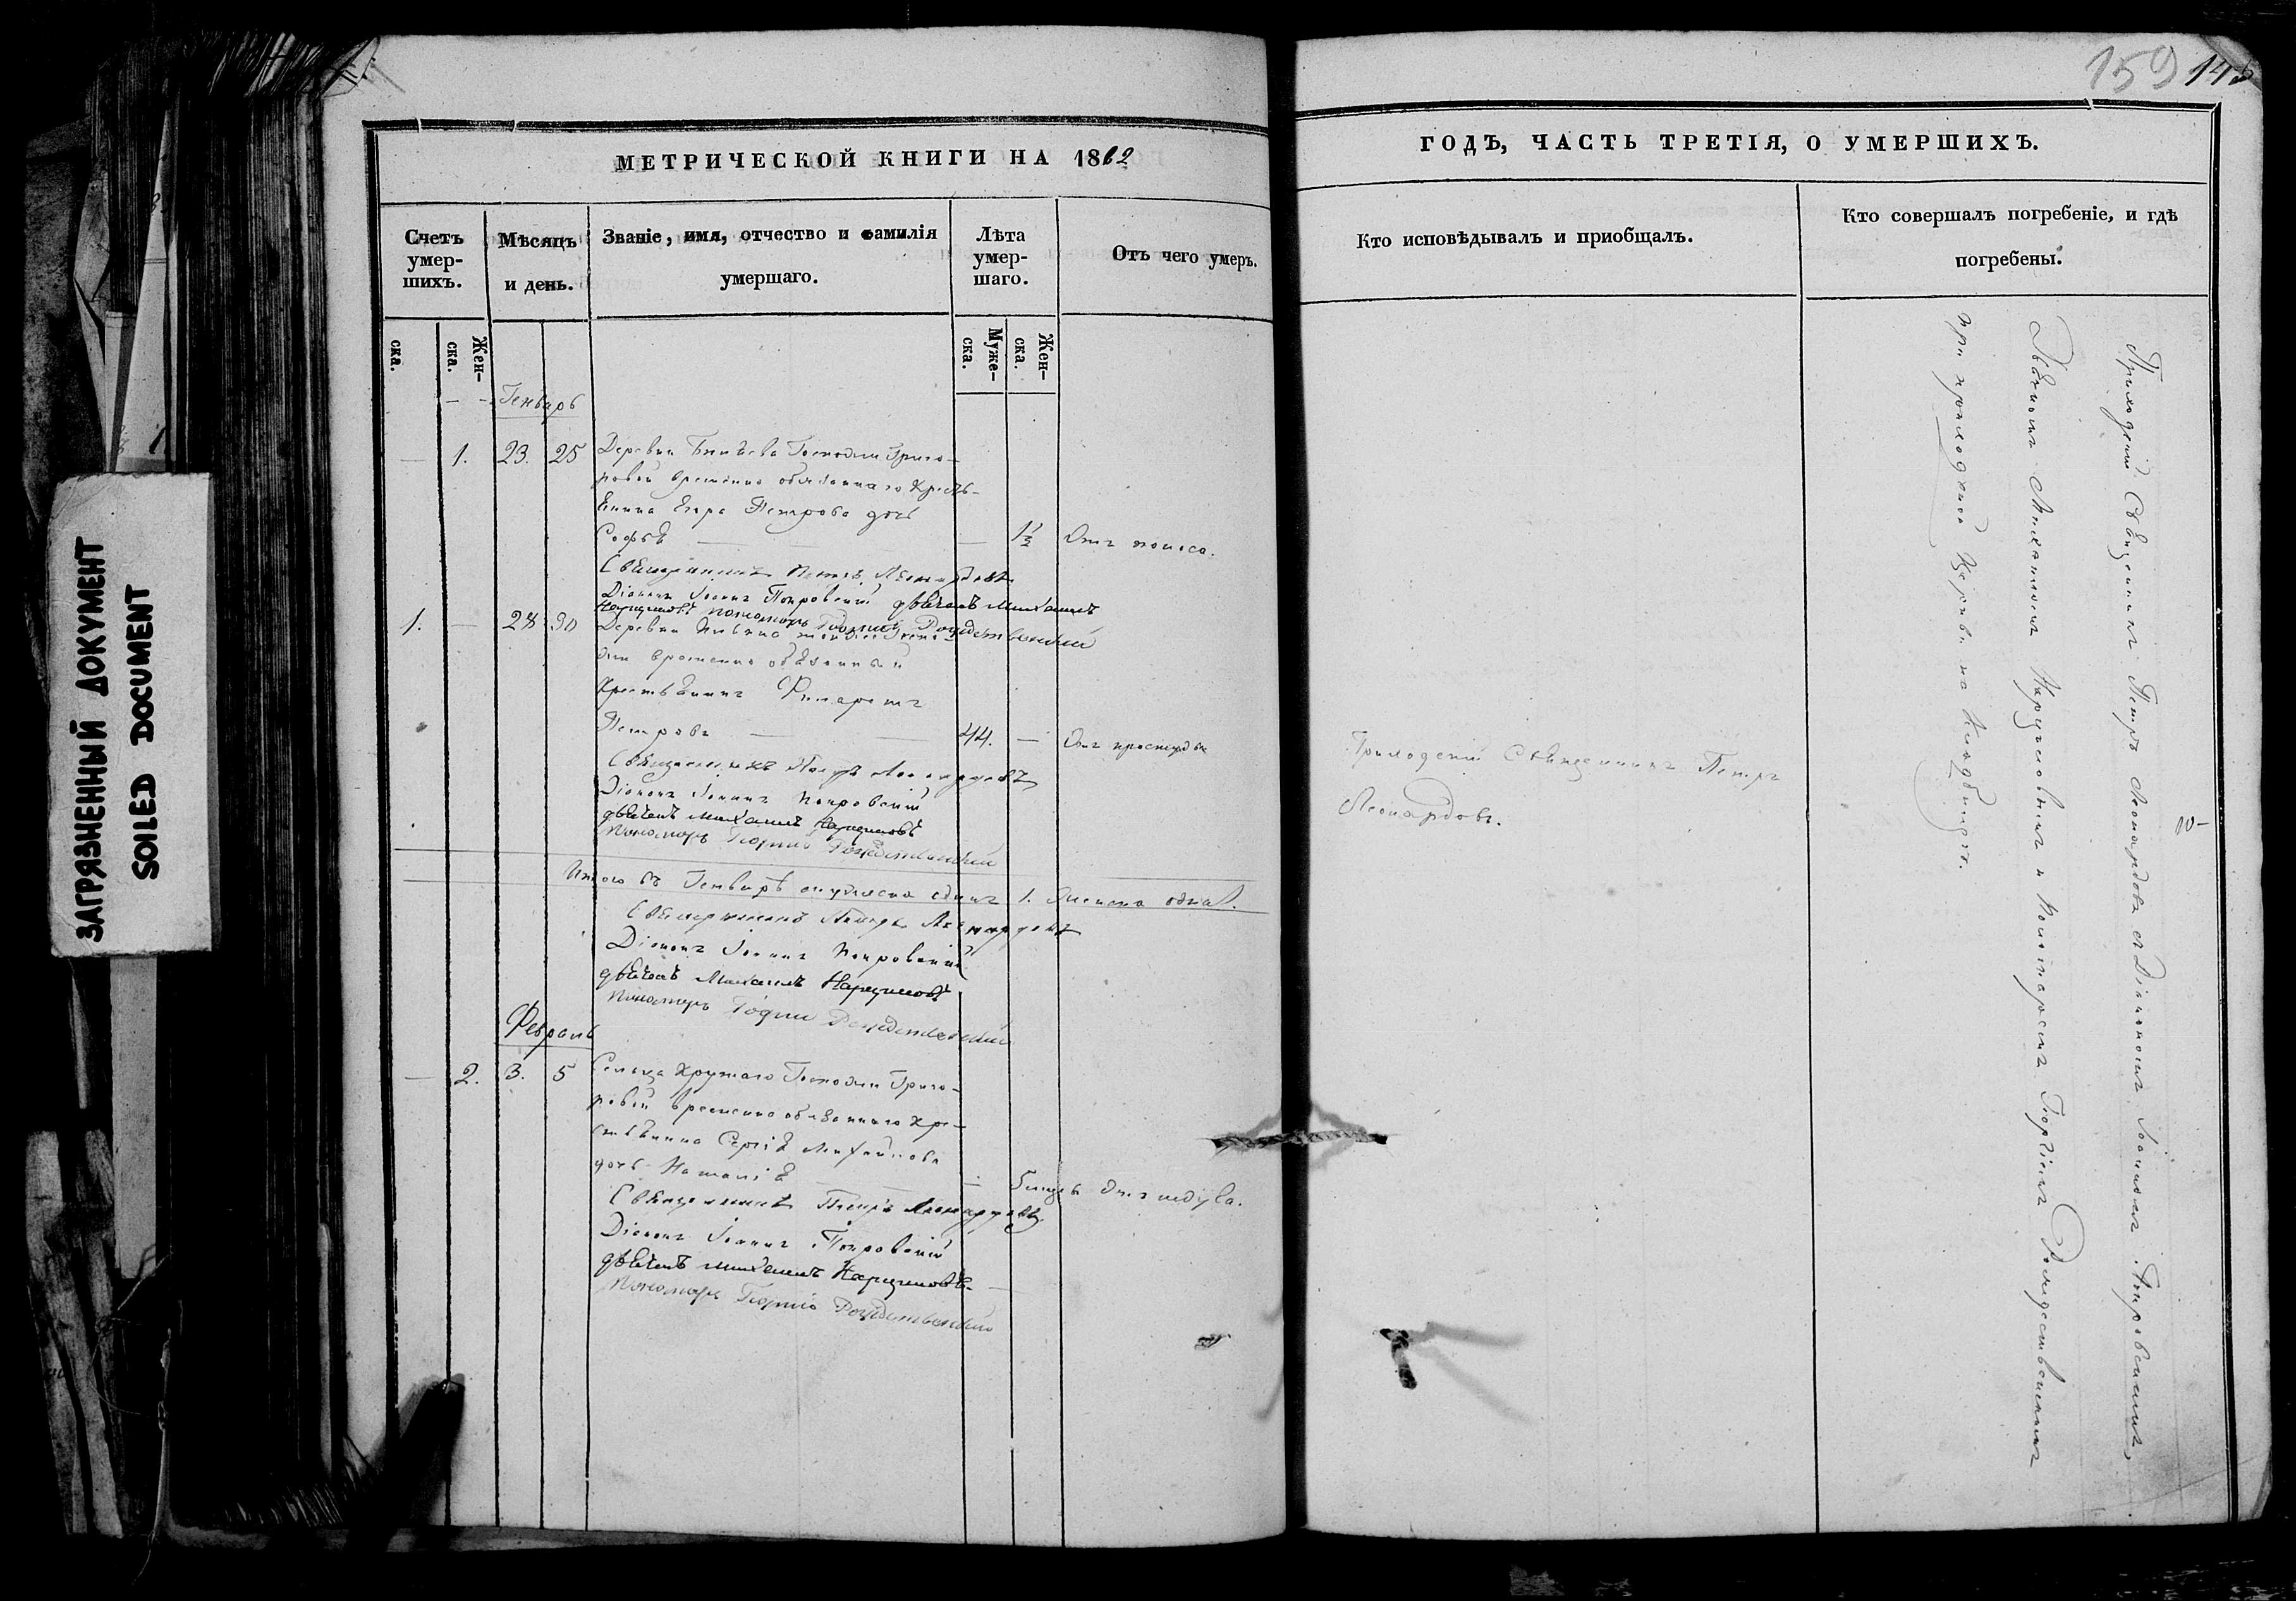 ЗАГРЯЗНЕННЫЙ ДОКУМЕНТ
SOILED DOCUMENT
МЕТРИЧЕСКОЙ КНИГИ НА 1862
Счетъ умер-
шихъ.
Мѣсяцъ
и день.
Званіе, имя, отчество и фамилія
умершаго.
Лѣта
умер-
шаго.
Отъ чего умеръ.
ска.
Жен-
ска.
Муже-
ска.
Жен-
ска.
Генварь
1. 23. 25 Деревни Господи Григо-
ровой временно обязаннаго крестья-
нина Егора Петрова дочь
Софья 1½ Отъ поноса.
Священникъ Петръ Леонардовъ
Діаконъ Іоаннъ Покровскій дьячекъ Михаилъ
Нарциссовъ пономарь Георгій Рождественскій
1. 28 30 Деревни
жи временно обязанный
крестьянинъ Филаретъ
Петровъ 44. Отъ простуды
Священникъ Петръ Леонардовъ
Діаконъ Іоаннъ Покровскій
дьячекъ Михаилъ Нарциссовъ
Пономарь Георгій Рождественскій
Итого въ Генварѣ мужеска одинъ 1. Женска одна 1.
Священникъ Петръ Леонардовъ
Діаконъ Іоаннъ Покровскій
дьячекъ Михаилъ Нарциссовъ
Пономарь Георгій Рождественскій
Февраль
2. 3. 5 Сельца Крутаго Госпожи Григо-
ровой временно обязаннаго кре-
стьянина Сергія Михайлова
дочь Наталія 5 Отъ
Священникъ Петръ Леонардовъ
Діаконъ Іоаннъ Покровскій
дьячекъ Михаилъ Нарциссовъ
Пономарь Георгій Рождественскій
159
ГОДЪ, ЧАСТЬ ТРЕТІЯ, О УМЕРШИХЪ.
Кто исповѣдывалъ и приобщалъ.
Кто совершалъ погребеніе, и гдѣ
погребены.
Приходскій Священникъ Петръ
Леонардовъ.
Приходскій Священникъ Петръ Леонардовъ съ Діакономъ Іоанномъ Покровскимъ,
Дьячкомъ Михаиломъ Нарциссовымъ и Пономаремъ Георгіемъ Рождественскимъ
при приходской Церкви на Кладбищѣ.